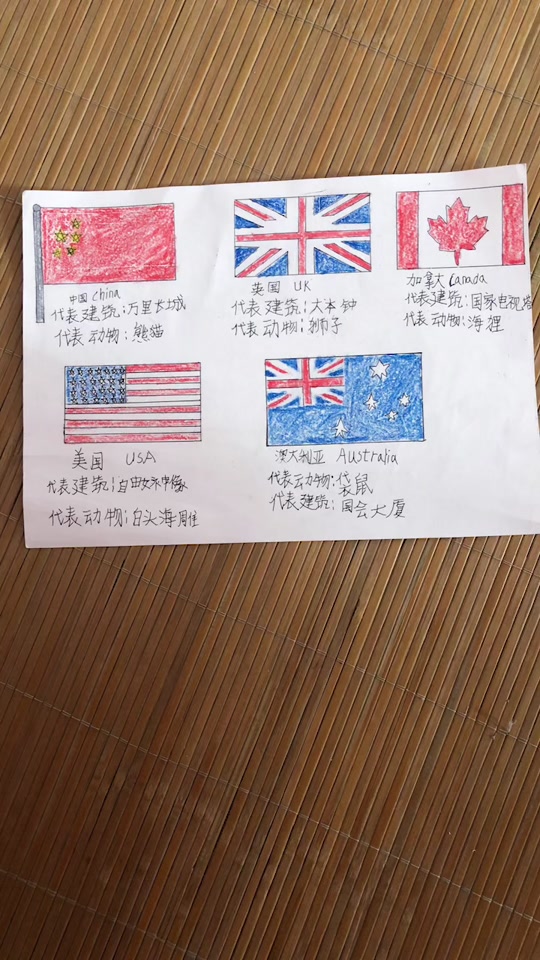 中国 China
代表建筑:万里长城
代表动物:熊猫
英国 UK
代表建筑:大本钟
代表动物:狮子
加拿大 Canada
代表建筑:国家电视塔
代表动物:海狸
美国 USA
代表建筑:自由女神像
代表动物:白头海雕
澳大利亚 Australia
代表动物:袋鼠
代表建筑:国会大厦